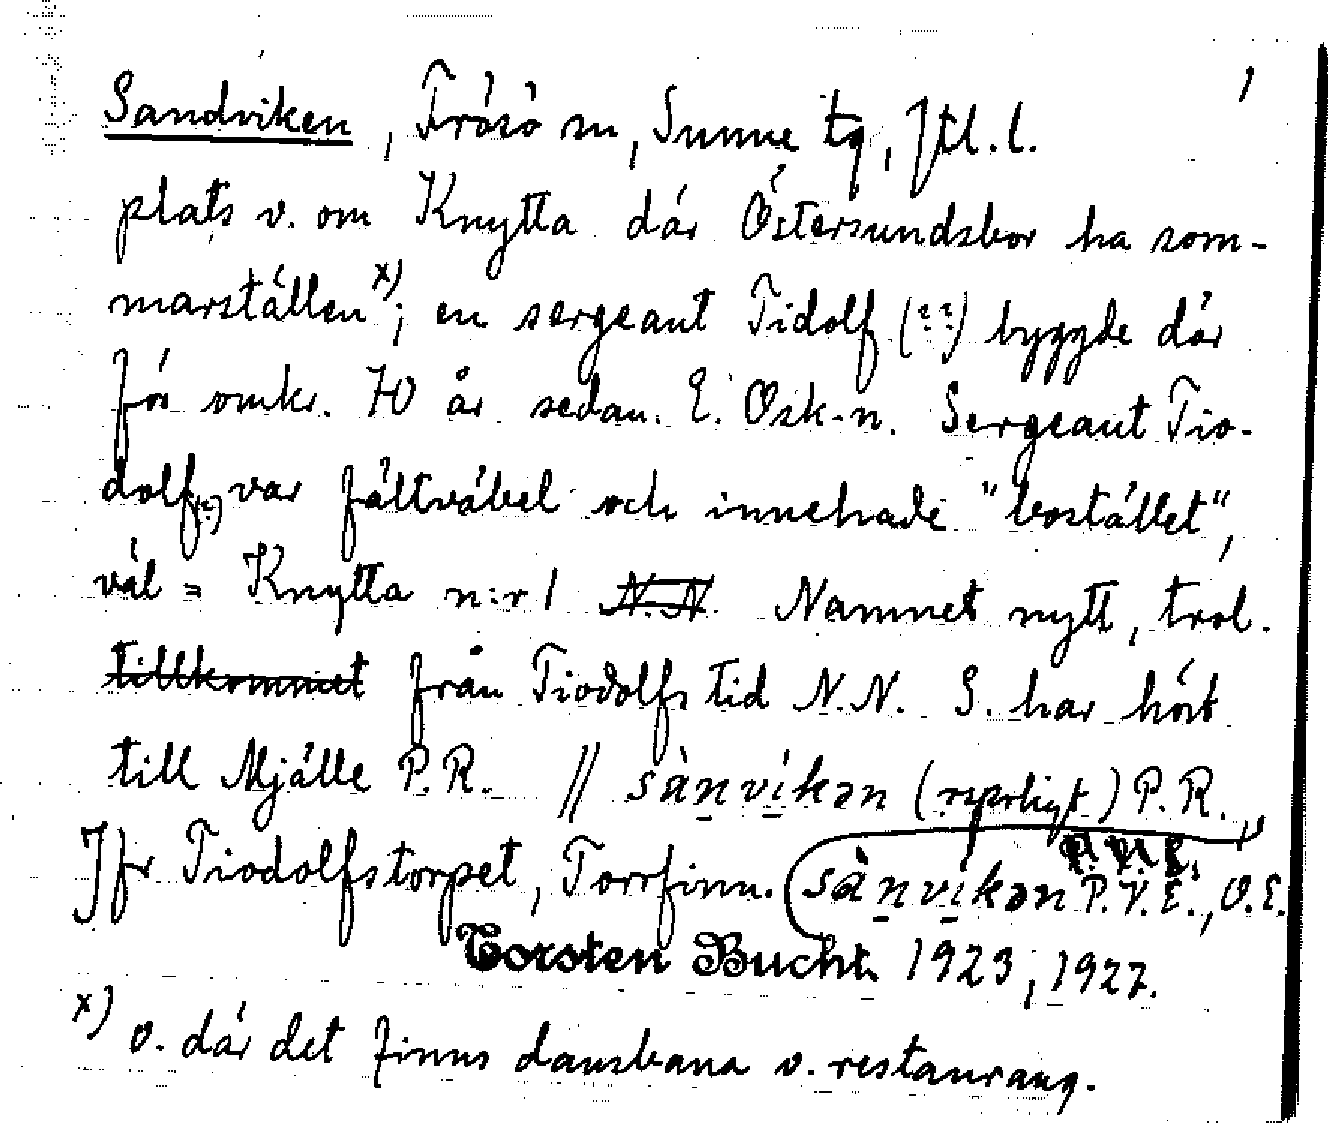 Sandviken, Frösö sn, Sunne tg, Jtl. l.
plats v. om Knytta där Östersundsbor ha som-
marställen x); en sergeant Tidolf (??) byggde där
för omkr. 70 år sedan. E. Osk-n. Sergeant Tio-
dolf var fältväbel och innehade "bostället",
väl = Knytta n:r 1 N.N. Namnet nytt, trol.
tillkommet från Tiodolfs tid N.N. S. har hört
till Mjälle P.R. // sànvíkən ( ) P.R.,
Jfr Tiodolfstorpet, Torrfinn. sànvíkən P.V.E., O.E.
Torsten Bucht. 1923, 1927.
x) o. där det finns dansbana o. restaurang.